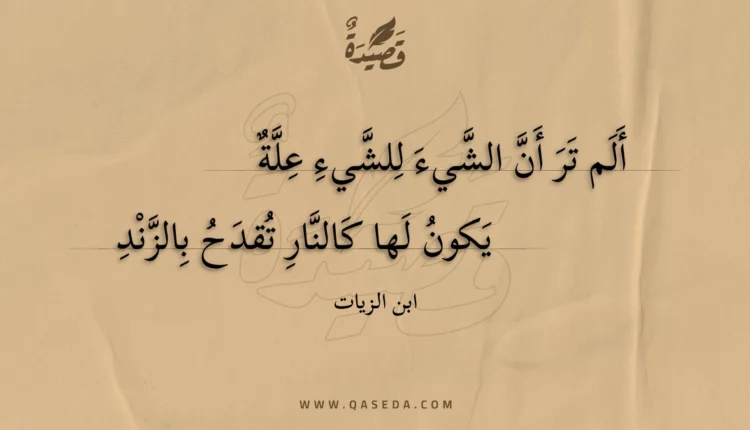 قَصِيْدَةٌ
أَلَم تَرَ أَنَّ الشَّيءَ لِلشَّيءِ عِلَّةٌ
يَكونُ لَها كَالنَّارِ تُقدَحُ بِالزَّنْدِ
ابن الزيات
WWW.QASEDA.COM